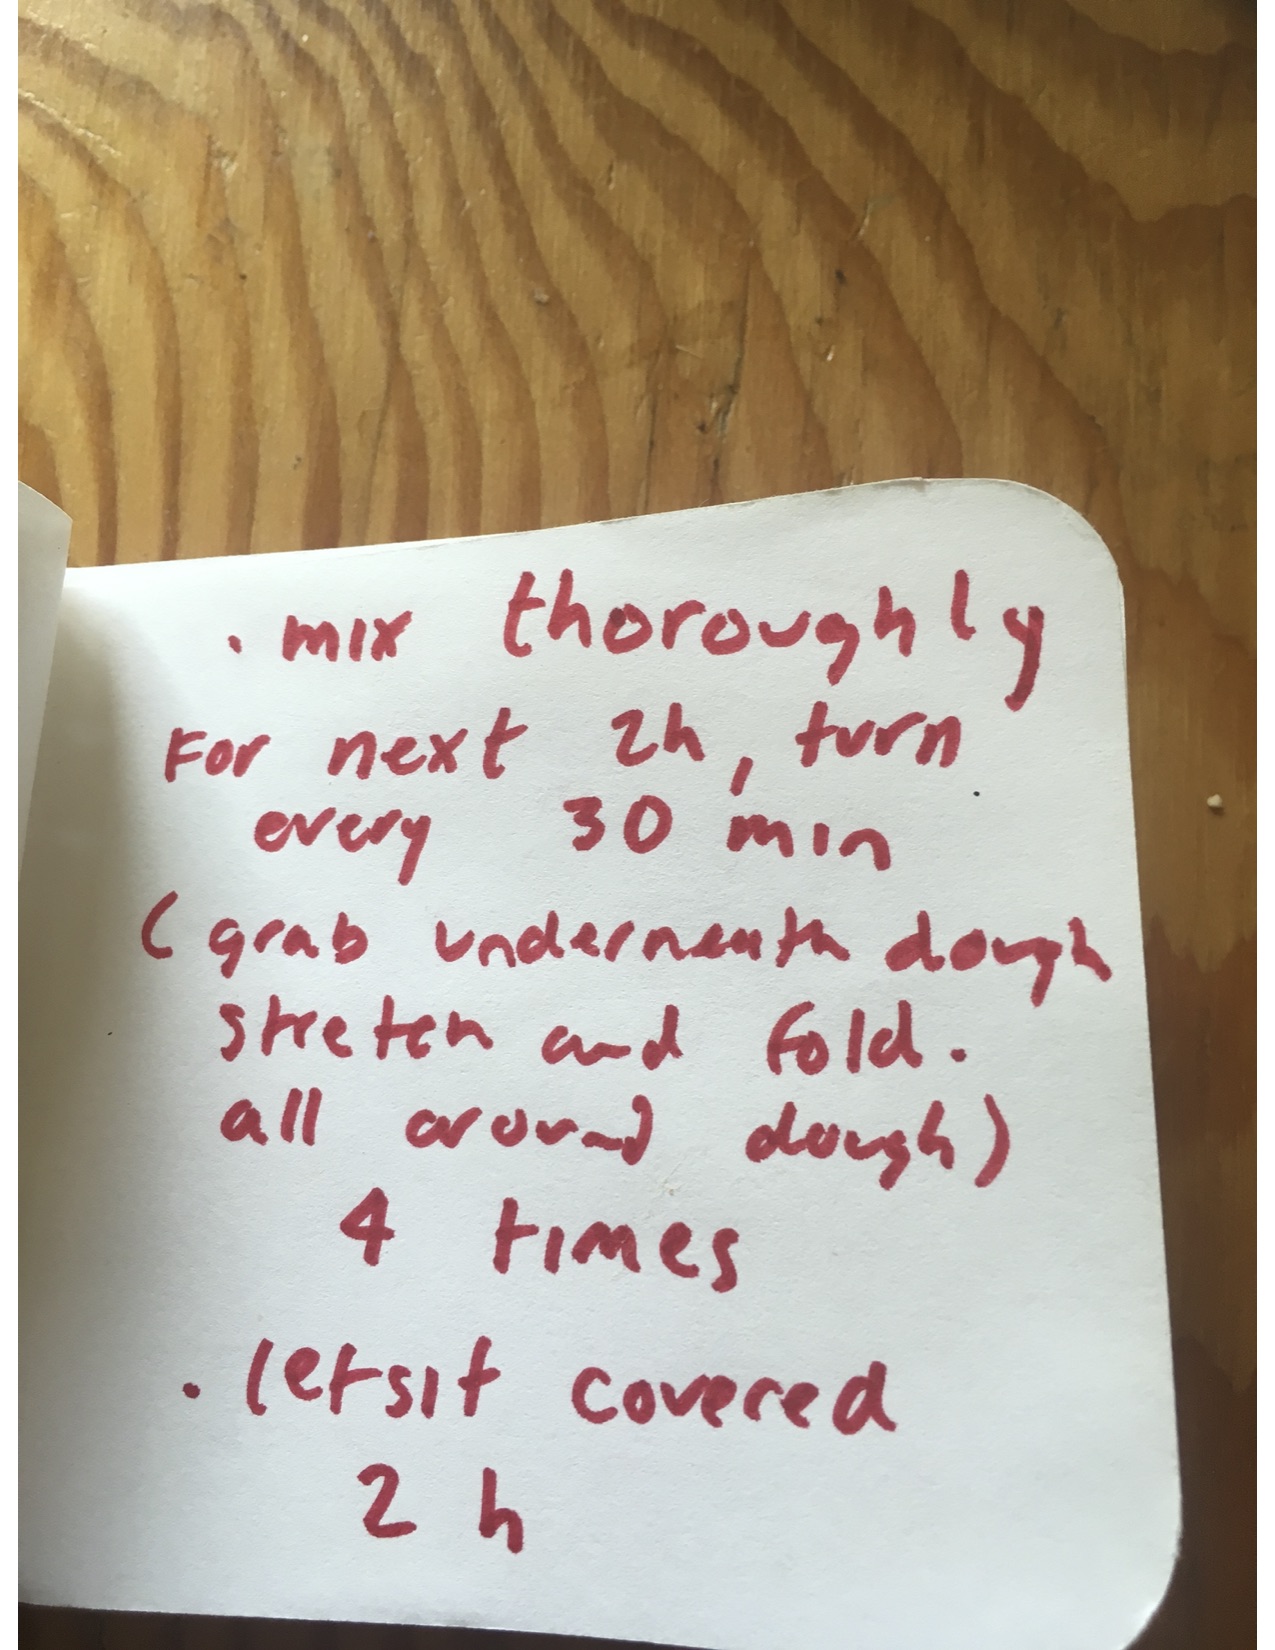 · mix thoroughly
For next 2h, turn
every 30 min
(grab underneath dough
stretch and fold.
all around dough)
4 times
· let sit covered
2 h